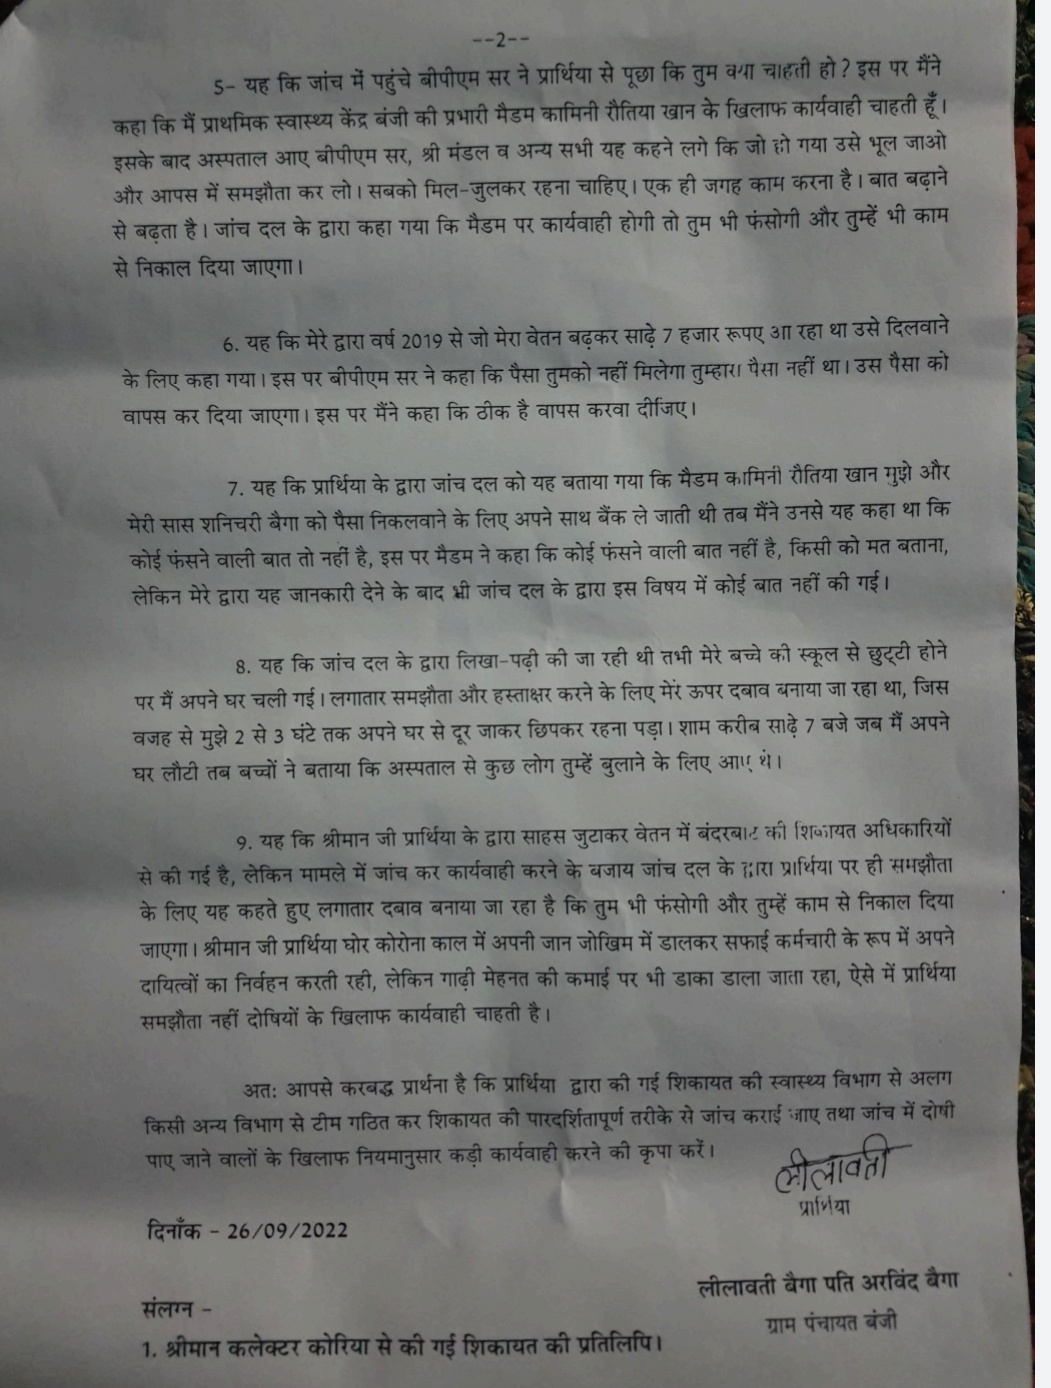 --2--
5- यह कि जांच में पहुंचे बीपीएम सर ने प्रार्थिया से पूछा कि तुम क्या चाहती हो? इस पर मैंने
कहा कि मैं प्राथमिक स्वास्थ्य केंद्र बंजी की प्रभारी मैडम कामिनी रौतिया खान के खिलाफ कार्यवाही चाहती हूँ।
इसके बाद अस्पताल आए बीपीएम सर, श्री मंडल व अन्य सभी यह कहने लगे कि जो हो गया उसे भूल जाओ
और आपस में समझौता कर लो। सबको मिल-जुलकर रहना चाहिए। एक ही जगह काम करना है। बात बढ़ाने
से बढ़ता है। जांच दल के द्वारा कहा गया कि मैडम पर कार्यवाही होगी तो तुम भी फंसोगी और तुम्हें भी काम
से निकाल दिया जाएगा।
6. यह कि मेरे द्वारा वर्ष 2019 से जो मेरा वेतन बढ़कर साढ़े 7 हजार रूपए आ रहा था उसे दिलवाने
के लिए कहा गया। इस पर बीपीएम सर ने कहा कि पैसा तुमको नहीं मिलेगा तुम्हारा पैसा नहीं था। उस पैसा को
वापस कर दिया जाएगा। इस पर मैंने कहा कि ठीक है वापस करवा दीजिए।
7. यह कि प्रार्थिया के द्वारा जांच दल को यह बताया गया कि मैडम कामिनी रौतिया खान मुझे और
मेरी सास शनिचरी बैगा को पैसा निकलवाने के लिए अपने साथ बैंक ले जाती थी तब मैंने उनसे यह कहा था कि
कोई फंसने वाली बात तो नहीं है, इस पर मैडम ने कहा कि कोई फंसने वाली बात नहीं है, किसी को मत बताना,
लेकिन मेरे द्वारा यह जानकारी देने के बाद भी जांच दल के द्वारा इस विषय में कोई बात नहीं की गई।
8. यह कि जांच दल के द्वारा लिखा-पढ़ी की जा रही थी तभी मेरे बच्चे की स्कूल से छुट्टी होने
पर मैं अपने घर चली गई। लगातार समझौता और हस्ताक्षर करने के लिए मेरे ऊपर दबाव बनाया जा रहा था, जिस
वजह से मुझे 2 से 3 घंटे तक अपने घर से दूर जाकर छिपकर रहना पड़ा। शाम करीब साढ़े 7 बजे जब मैं अपने
घर लौटी तब बच्चों ने बताया कि अस्पताल से कुछ लोग तुम्हें बुलाने के लिए आए थे।
9. यह कि श्रीमान जी प्रार्थिया के द्वारा साहस जुटाकर वेतन में बंदरबाट की शिकायत अधिकारियों
से की गई है, लेकिन मामले में जांच कर कार्यवाही करने के बजाय जांच दल के द्वारा प्रार्थिया पर ही समझौता
के लिए यह कहते हुए लगातार दबाव बनाया जा रहा है कि तुम भी फंसोगी और तुम्हें काम से निकाल दिया
जाएगा। श्रीमान जी प्रार्थिया घोर कोरोना काल में अपनी जान जोखिम में डालकर सफाई कर्मचारी के रूप में अपने
दायित्वों का निर्वहन करती रही, लेकिन गाढ़ी मेहनत की कमाई पर भी डाका डाला जाता रहा, ऐसे में प्रार्थिया
समझौता नहीं दोषियों के खिलाफ कार्यवाही चाहती है।
अतः आपसे करबद्ध प्रार्थना है कि प्रार्थिया द्वारा की गई शिकायत की स्वास्थ्य विभाग से अलग
किसी अन्य विभाग से टीम गठित कर शिकायत की पारदर्शितापूर्ण तरीके से जांच कराई जाए तथा जांच में दोषी
पाए जाने वालों के खिलाफ नियमानुसार कड़ी कार्यवाही करने की कृपा करें।
लीलावती
प्रार्थिया
दिनाँक - 26/09/2022
लीलावती बैगा पति अरविंद बैगा
ग्राम पंचायत बंजी
संलग्न -
1. श्रीमान कलेक्टर कोरिया से की गई शिकायत की प्रतिलिपि।